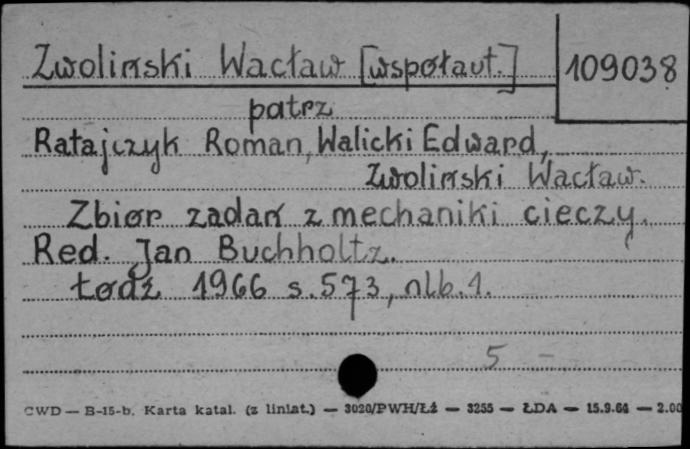 Zwoliński Wacław [współaut.] 109038
patrz
Ratajczyk Roman, Walicki Edward,
Zwoliński Wacław.
Zbiór zadań z mechaniki cieczy.
Red. Jan Buchholtz.
Łódź 1966 s. 573, nlb. 1.
5 -
CWD — B-15-b. Karta katal. (z liniat.) — 3020/PWH/Łź — 3255 — ŁDA — 15.9.64 — 2.00